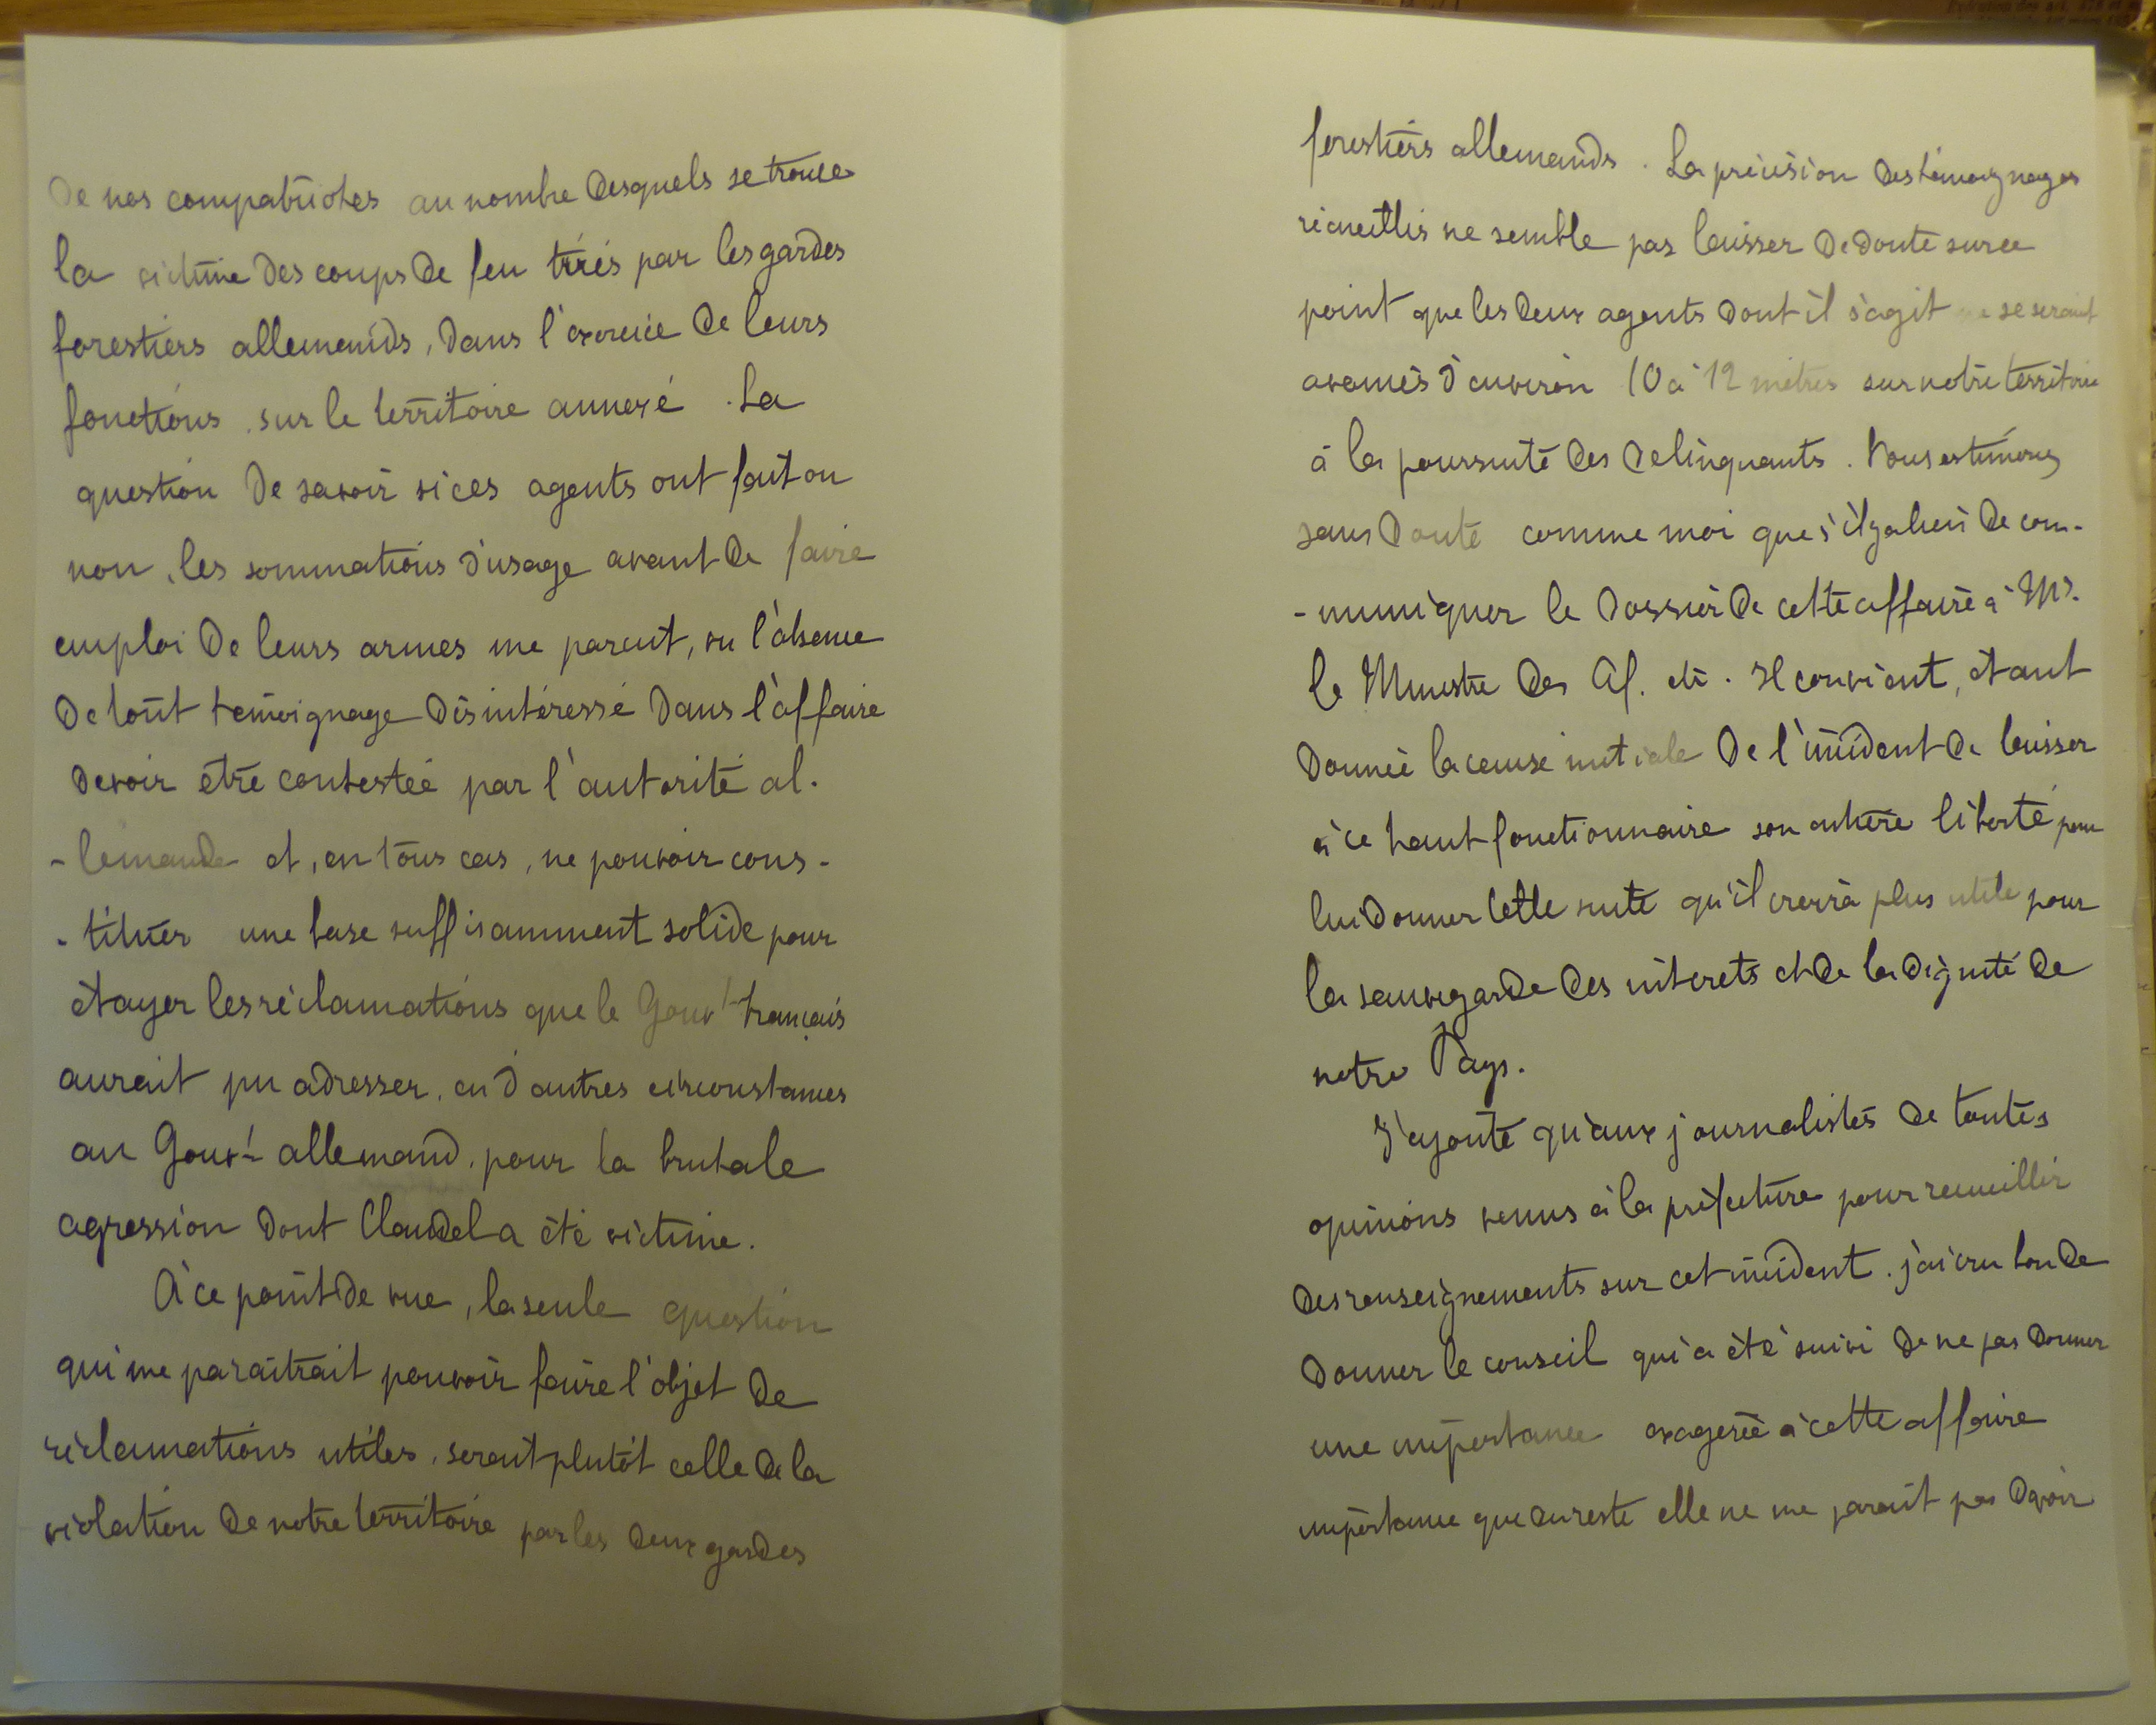 De nos compatriotes au nombre desquels se trouve
la victime des coups de feu tirés par les gardes
forestiers allemands, dans l'exercice de leurs
fonctions, sur le territoire annexé. La
question de savoir si ces agents ont fait ou
non, les sommations d'usage avant de faire
emploi de leurs armes me parait, vu l'absence
de tout témoignage désintéressé dans l'affaire
devoir être contestée par l'autorité al-
-lemande et, en tous cas, ne pouvoir cons-
-tituer une base suffisamment solide pour
étayer les réclamations que le Gouvt français
aurait pu adresser, en d'autres circonstances
au Gouvt allemand, pour la brutale
agression dont Claudel a été victime.
A ce point de vue, la seule question
qui me paraîtrait pouvoir faire l'objet de
réclamations utiles, serait plutôt celle de la
violation de notre territoire par les deux gardes
forestiers allemands. La précision des témoignages
recueillis ne semble pas laisser de doute sur ce
point que les deux agents dont il s'agit se seraient
avancés d'environ 10 à 12 mètres sur notre territoire
à la poursuite des délinquants. Vous estimerez
sans doute comme moi que s'il y a lieu de com-
-muniquer le dossier de cette affaire à Mr.
le Ministre des Af. etr. Il convient, étant
donnée la cause initiale de l'incident de laisser
à ce haut fonctionnaire son entière liberté pour
lui donner telle suite qu'il croira plus utile pour
la sauvegarde des intérets et de la dignité de
notre Pays.
J'ajoute qu'aux journalistes de toutes
opinions venus à la préfecture pour recueillir
des renseignements sur cet incident, j'ai cru bon de
donner le conseil qui a été suivi de ne pas donner
une importance exagerée à cette affaire
importance que du reste elle ne me parait pas devoir